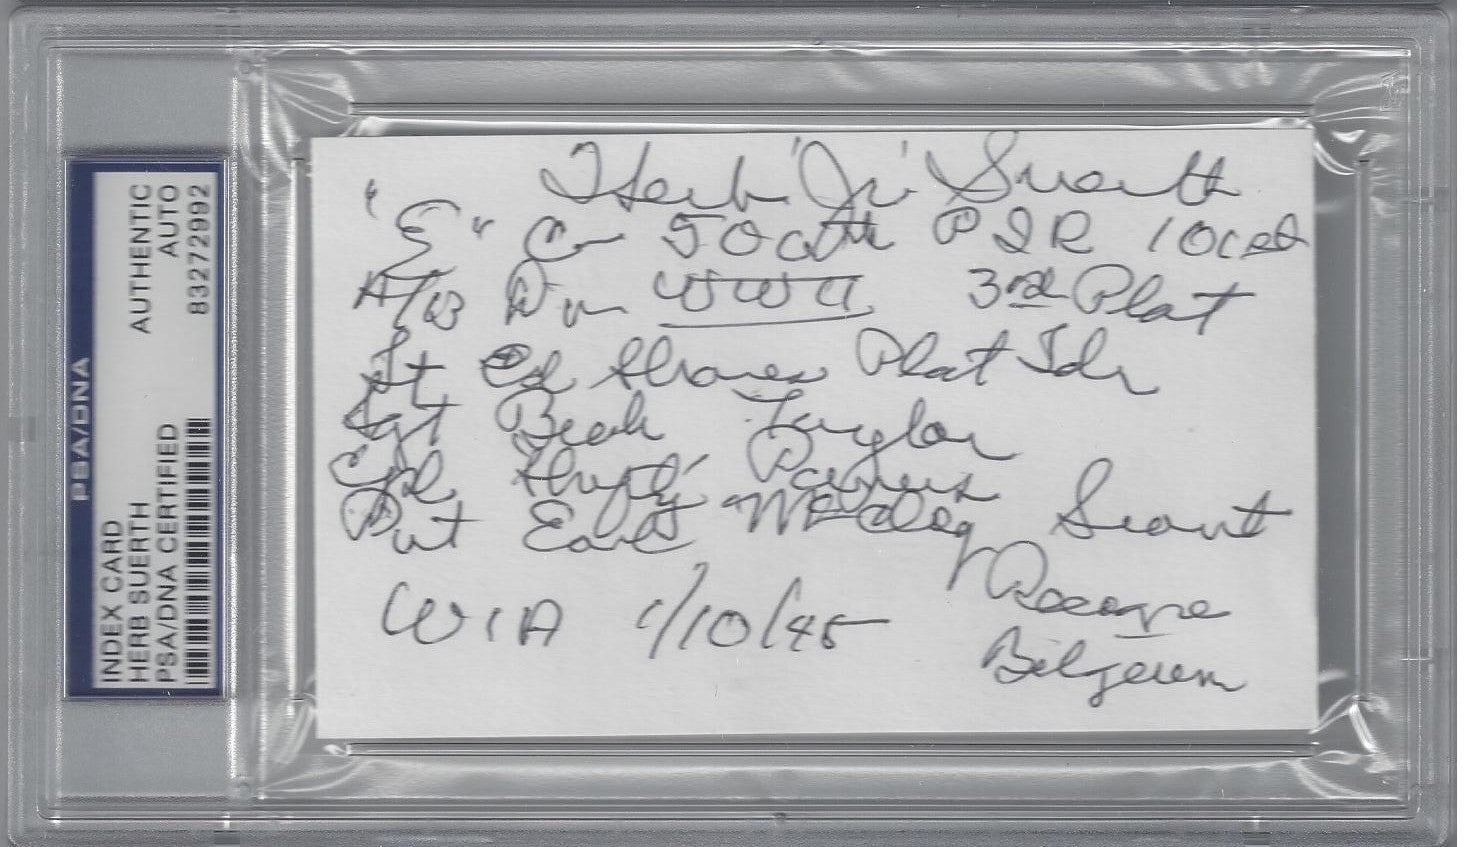 PSA/DNA
INDEX CARD
HERB SUERTH
PSA/DNA CERTIFIED
AUTHENTIC
AUTO
83272992
Herb 'Jr' Suerth
"E" Co 506th PIR 101st
A/B Div WWII 3rd Plat
Lt Ed Shames Plat Ldr
Sgt Buck Taylor
Cpl Shifty Powers
Pvt Earl McClung Scout
WIA 1/10/45
Belgium